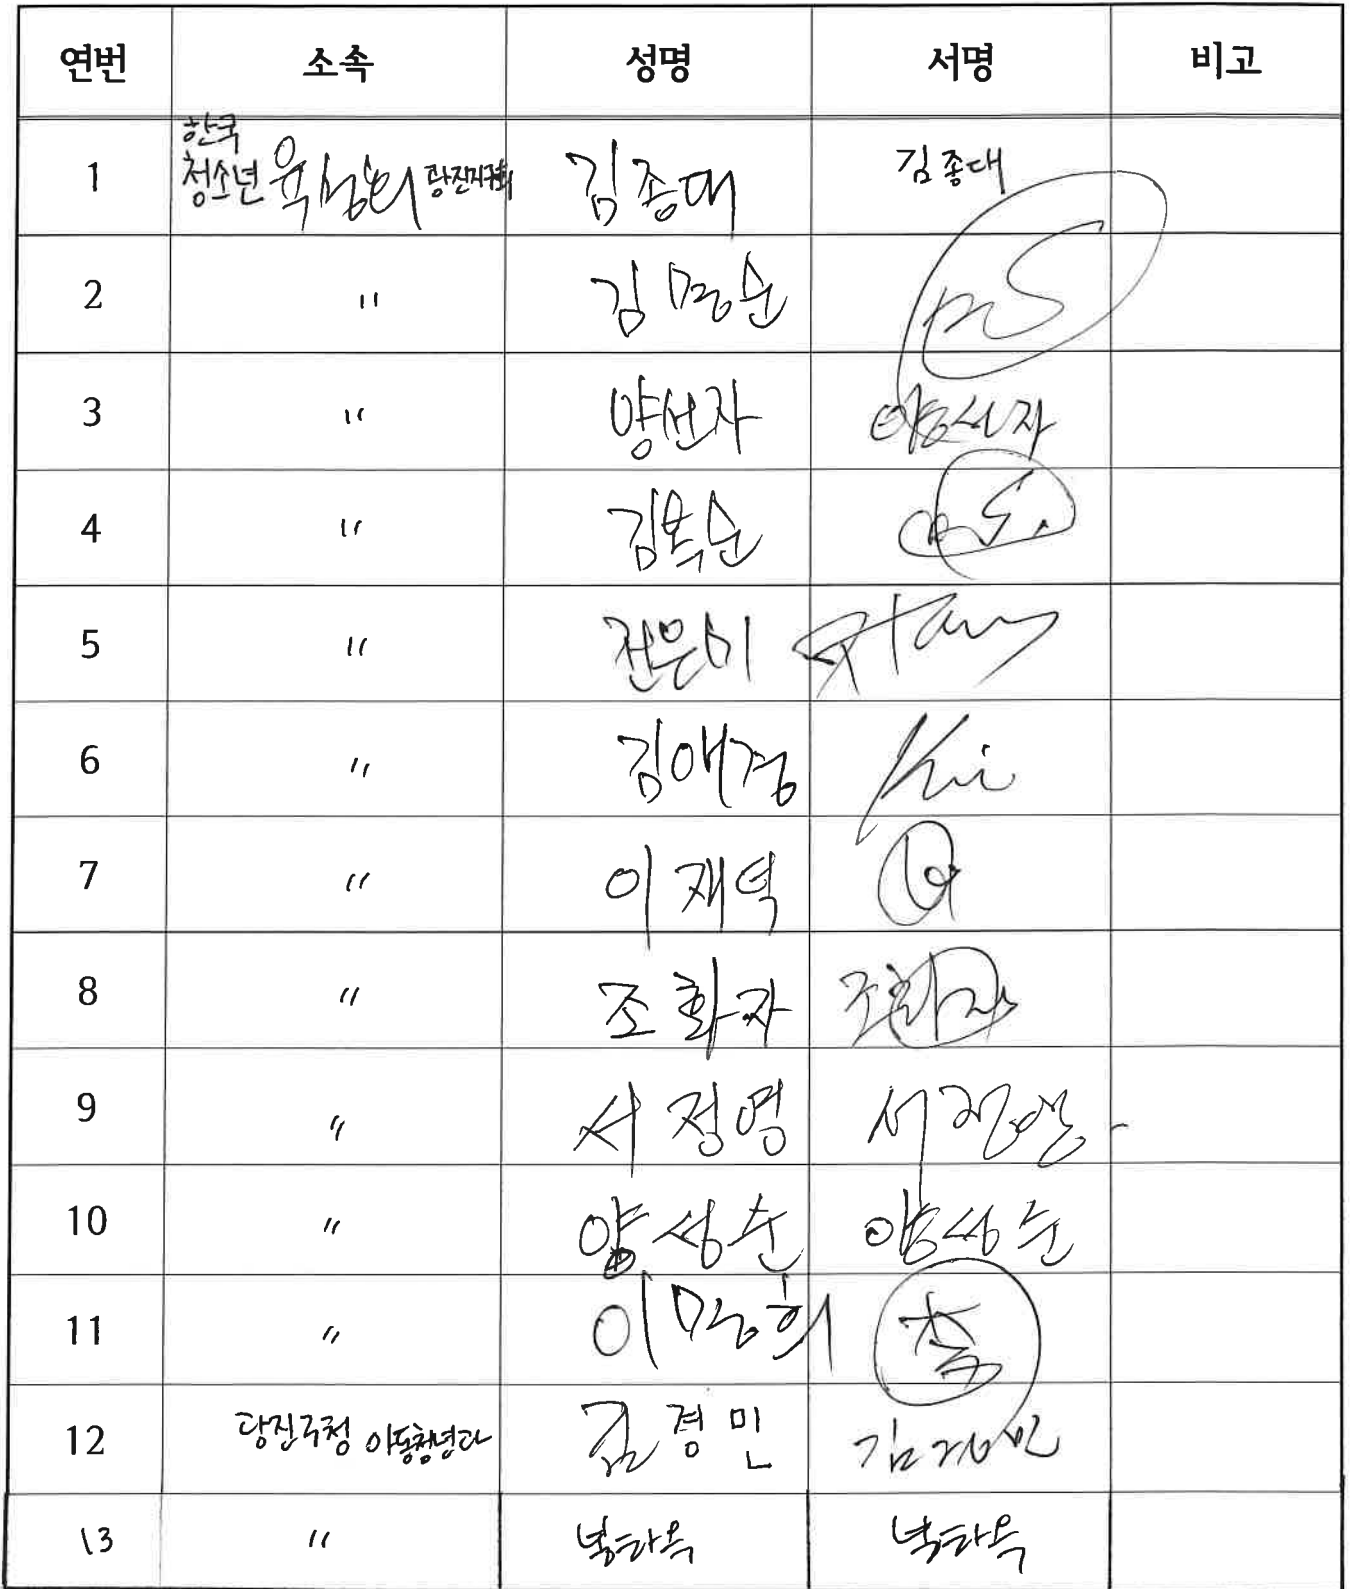 연번 소속 성명 서명 비고
1 한국 청소년 육성회 광진지구회 김종대 김종대
2 〃 김명순
3 〃 양선자 양선자
4 〃 김복순
5 〃 전은미
6 〃 김애경 Ki
7 〃 이재덕
8 〃 조화자 조화자
9 〃 서정영 서정영
10 〃 양성순 양성순
11 〃 이명희
12 광진구청 아동청년과 김경민 김경민
13 〃